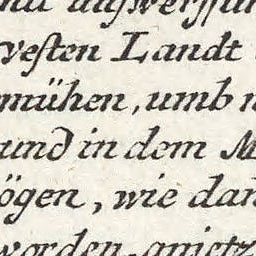 vesten Landt
mühen, umb
und in dem M
ögen, wie dan
worden, anietz